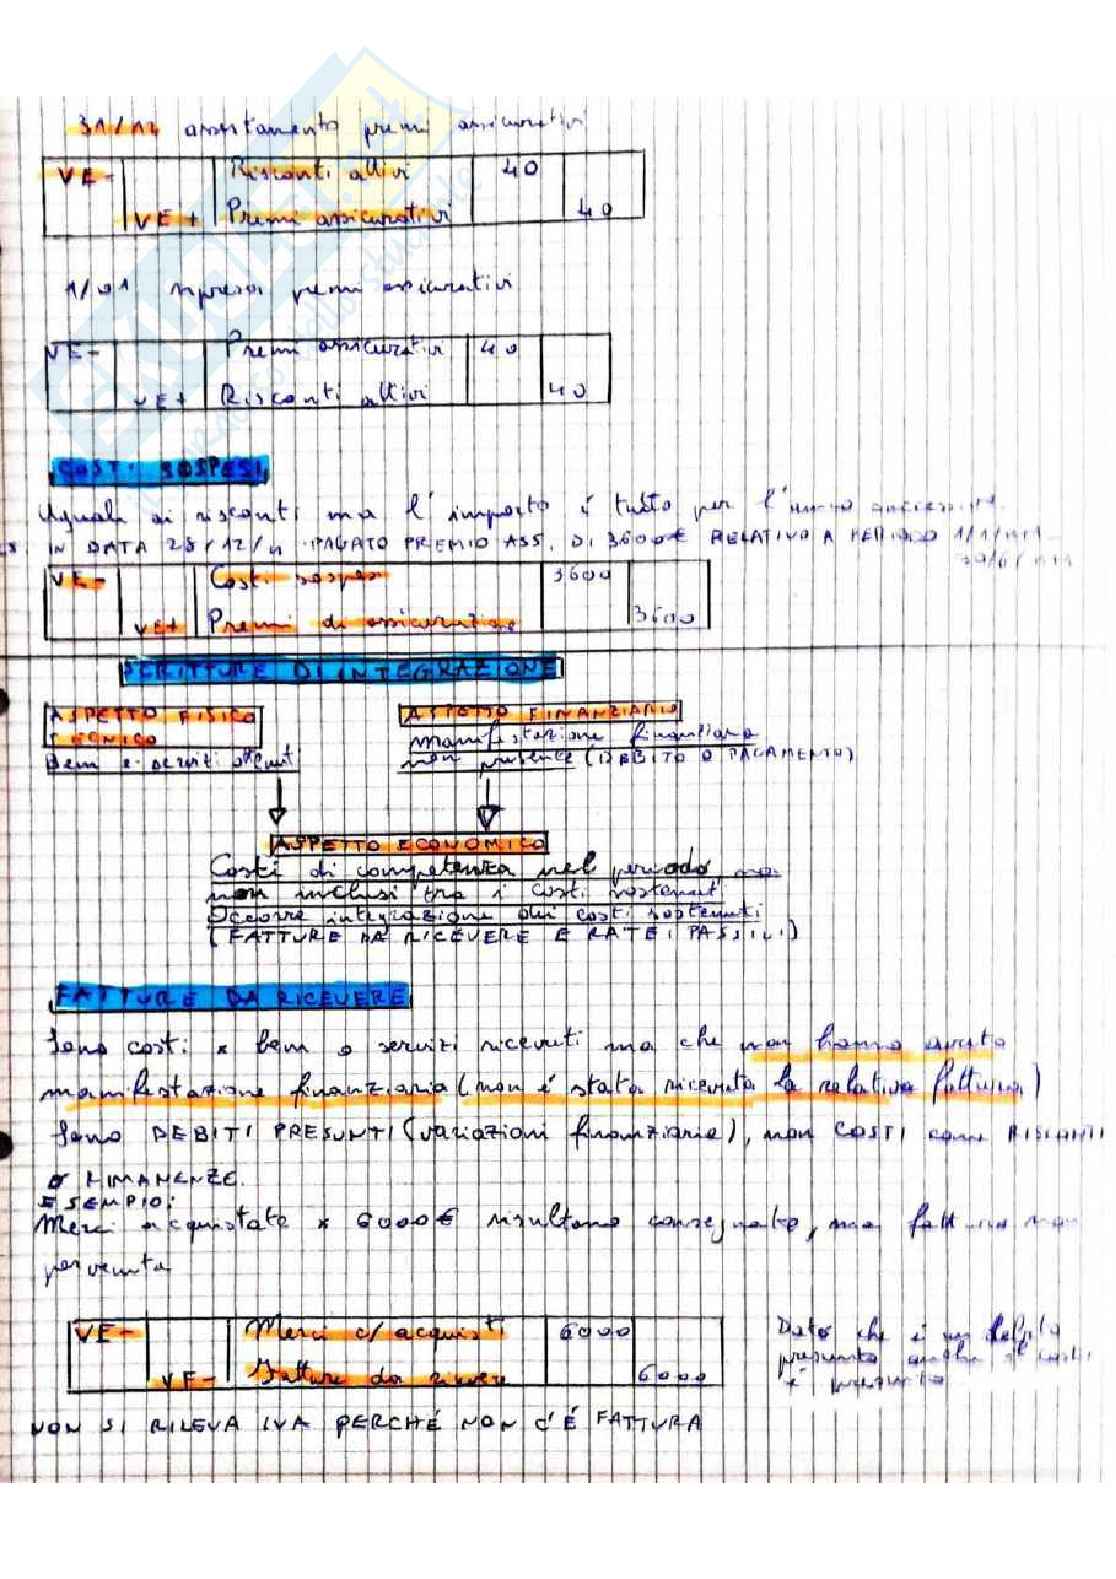 31/12 assestamento premi assicurativi
VE- Risconti attivi 40
VE+ Premi assicurativi 40
1/01 ripresa premi assicurativi
VE- Premi assicurativi 40
VE+ Risconti attivi 40
COSTI SOSPESI
Uguale ai risconti ma l'importo è tutto per l'anno successivo
IN DATA 28/12/n PAGATO PREMIO ASS. DI 3600€ RELATIVO A PERIODO 1/1/n+1-
VE- Costi sospesi 3600
VE+ Premi di assicurazione 3600
SCRITTURE DI INTEGRAZIONE
ASPETTO FISICO ASPETTO FINANZIARIO
TECNICO manifestazione finanziaria
Beni e servizi ottenuti non presente (DEBITO O PAGAMENTO)
ASPETTO ECONOMICO
Costi di competenza nel periodo, ma
non inclusi tra i costi sostenuti
Occorre integrazione dei costi sostenuti
(FATTURE DA RICEVERE E RATEI PASSIVI)
FATTURE DA RICEVERE
Sono costi x beni o servizi ricevuti ma che non hanno avuto
manifestazione finanziaria (non é stata ricevuta la relativa fattura)
Sono DEBITI PRESUNTI (variazioni finanziarie), non COSTI come RISCONTI
o RIMANENZE.
ESEMPIO:
Merci acquistate x 6000€ risultano consegnate, ma fattura non
pervenuta
VE- Merci c/ acquisti 6000 Dato che è un debito
presunto anche il costo
VF- Fatture da ricevere 6000 è presunto
NON SI RILEVA IVA PERCHÉ NON C'É FATTURA